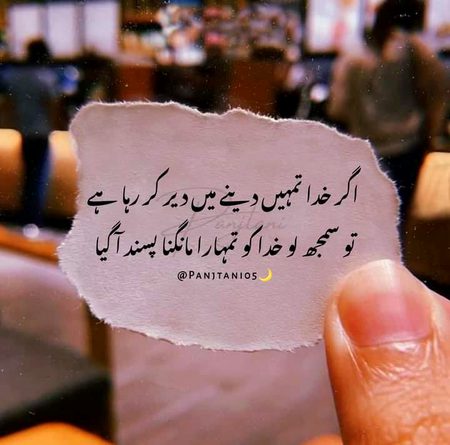 اگر خدا تمہیں دینے میں دیر کر رہا ہے
تو سمجھ لو خدا کو تمہارا مانگنا پسند آگیا
@PANJTANI05🌙
Panjtani